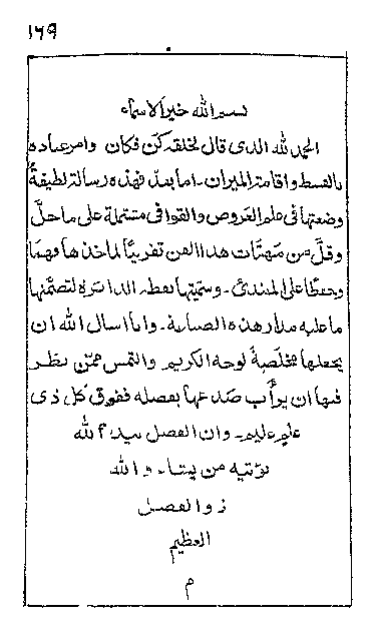 ١٦٩
بسم الله خير الاسماء
الحمد لله الذى قال لخلقه كن فكان وامر عباده
بالقسط واقامة الميزان۔ اما بعد فهذه رسالة لطيفةٌ
وضعتها فى علم العروض والقوافى مشتملة على ما حلّ
وقلّ من مهمّات هذا الفن تقريبًا لماخذها فهمًا
وحفظًا على المبتدئ۔ وسمّيتها نقطة الدائرة لتضمّنها
ما عليه مدار هذه الصناعة۔ وانا اسال الله ان
يجعلها مخلصةً لوجه الكريم والتمس ممّن نظر
فيها ان يرأب صدعها بفضله ففوق كل ذى
علم عليم۔ وان الفضل بيد الله
يؤتيه من يشاء۔ والله
ذو الفضل
العظيم
م